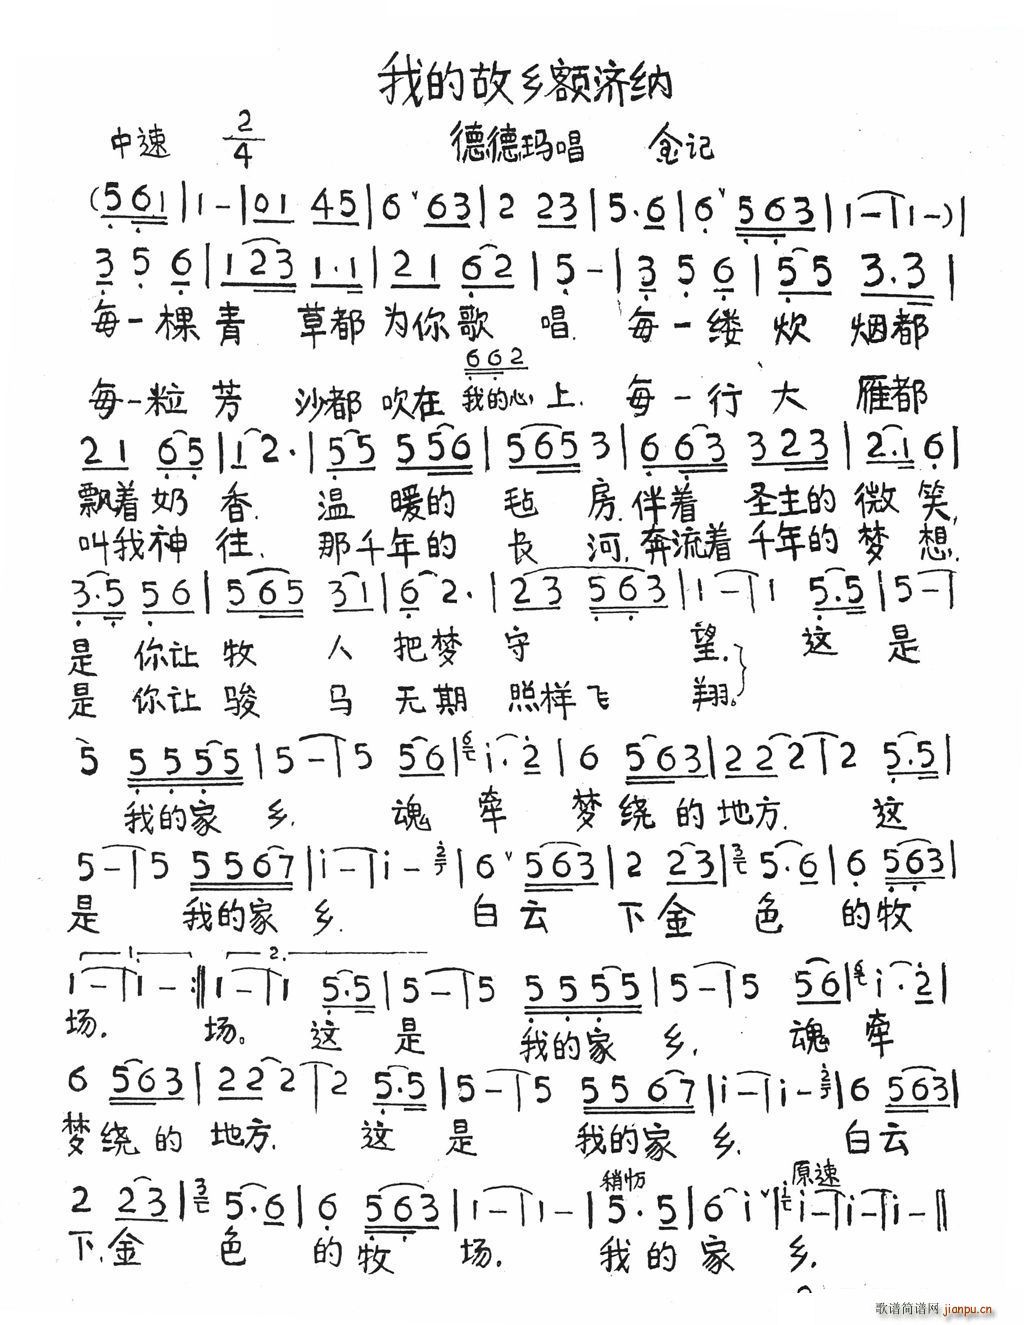 我的故乡额济纳
中速 2/4 德德玛唱 金记
(5 6 1 | 1 - | 0 1 4 5 | 6 ˅ 6 3 | 2 2 3 | 5 · 6 | 6 ˅ 5 6 3 | 1 - | 1 - ) |
3 5 6 | 1 2 3 1 · 1 | 2 1 6 2 | 5 - | 3 5 6 | 5 5 3 . 3 |
每一棵青 草都 为你歌 唱. 每一缕 炊 烟都
6 6 2
每一粒芳 沙都 吹在 我的心上. 每一行 大 雁都
2 1 6 5 | 1 2 · | 5 5 5 5 6 | 5 6 5 3 | 6 6 3 3 2 3 | 2 · 1 6 |
飘着奶 香. 温 暖的 毡 房.伴着 圣主的 微 笑,
叫我神 往. 那千年的 长 河,奔流着 千年的 梦 想.
3 · 5 5 6 | 5 6 5 3 1 | 6 2 · | 2 3 5 6 3 | 1 - | 1 5 · 5 | 5 - |
是 你让 牧 人 把梦 守 望. 这 是
是 你让 骏 马 无期 照样飞 翔。
5 5 5 5 5 | 5 - | 5 5 6 | i · 2 | 6 5 6 3 | 2 2 2 | 2 5 · 5 |
我的家 乡. 魂 牵 梦绕 的 地方. 这
5 - | 5 5 5 6 7 | i - | i - | 6 ˅ 5 6 3 | 2 2 3 | 5 · 6 | 6 5 6 3 |
是 我的家 乡. 白 云 下 金 色 的 牧
1. 2.
1 - | 1 - :‖ 1 - | 1 5 · 5 | 5 - | 5 5 5 5 5 | 5 - | 5 5 6 | i · 2 |
场. 场。 这 是 我的家 乡. 魂 牵
6 5 6 3 | 2 2 2 | 2 5 · 5 | 5 - | 5 5 5 6 7 | i - | i - | 6 5 6 3 |
梦绕 的 地方. 这 是 我的家 乡. 白云
稍 原速
2 2 3 | 5 · 6 | 6 5 6 3 | 1 - | 1 - | 5 · 5 | 6 i ˅ | i - | i - | i - ‖
下.金 色 的牧 场. 我 的 家 乡.
歌谱简谱网 jianpu.cn